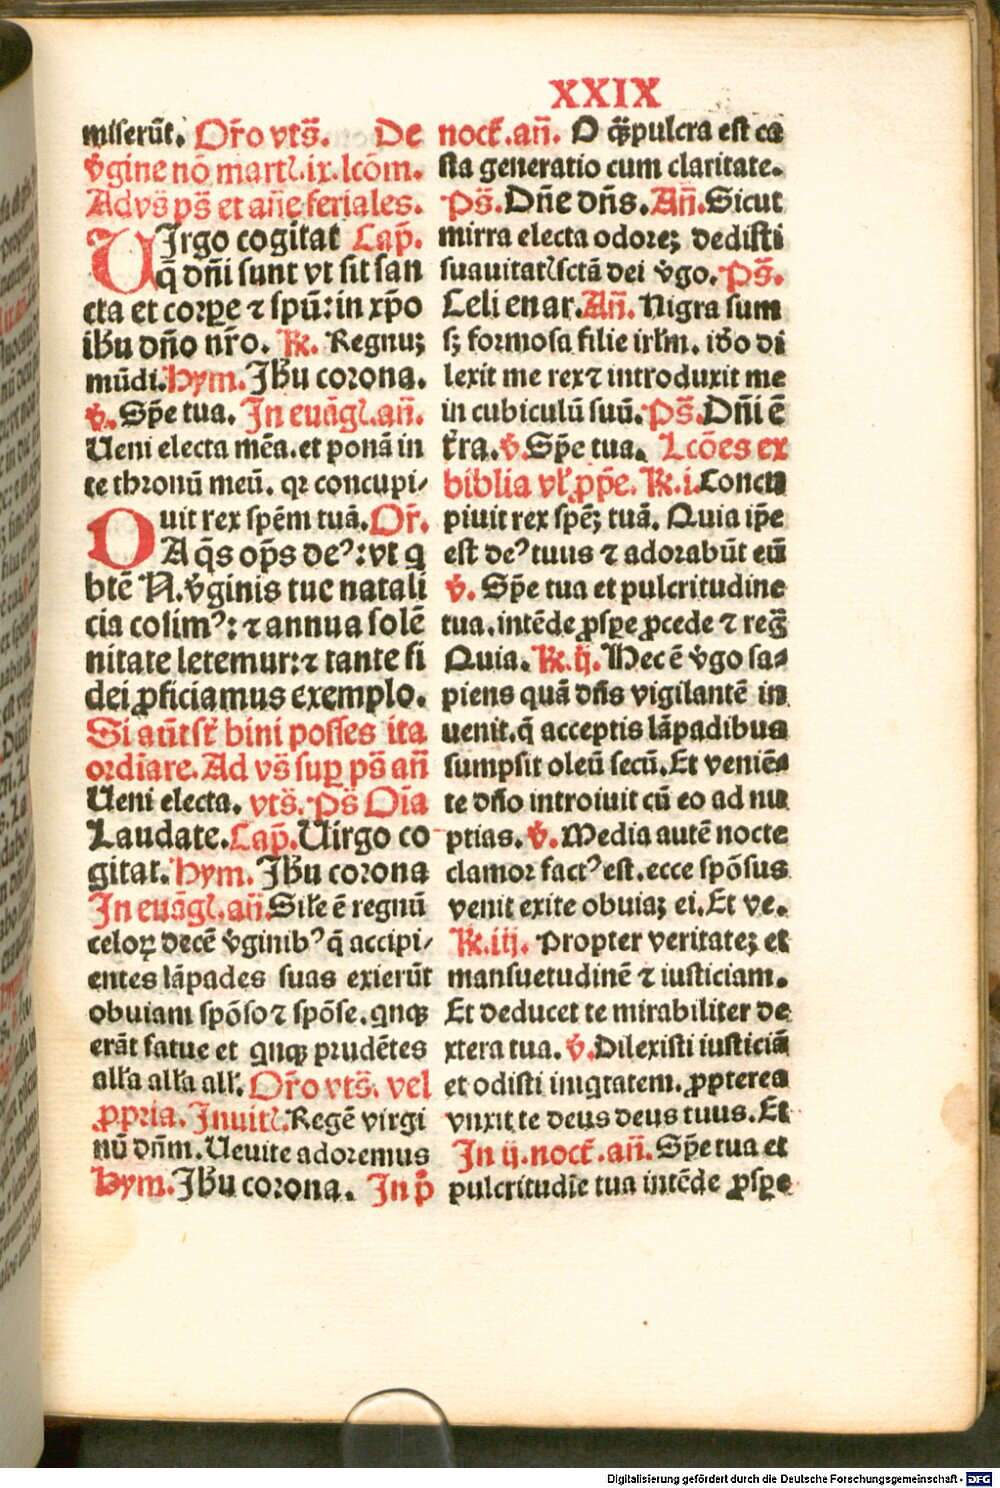 XXIX
miserūt. Or̄o vts̄. De
v̄gine nō martꝭ.ix.lcōm.
Ad vs̄ ps̄ et an̄e feriales.
UIrgo cogitat Cap̄.
q̄ dn̄i sunt vt sit san
cta et corpꝑe ⁊ spū: in xp̄o
ihū dn̄o nr̄o. ℟. Regnuꝫ
mūdi. Hym. Jhū corona.
v̄. Spē tua. Jn euāgꝉ.an̄.
Ueni electa mēa.et ponā in
te thronū meū. qꝛ concupi/
uit rex spēm tuā. Or̄.
DA q̄s op̄s deꝰ: vt q
btē N. v̄ginis tue natali
cia colimꝰ: ⁊ annua solē
nitate letemur: ⁊ tante fi
dei ꝓficiamus exemplo.
Si aūt sr̄ bini posses ita
ordīare. Ad vs̄ suꝑ ps̄ an̄
Ueni electa. vts̄. ps̄ Oīa
Laudate. Cap̄. Uirgo co
gitat. Hym. Jhū corona
Jn euāgꝉ.an̄. Sile ē regnū
celoꝝ decē v̄ginibꝰ q̄ accipi/
entes lāpades suas exierūt
obuiam spōso ⁊ spōse. qnqꝫ
erāt fatue et qnqꝫ prudētes
alła alła ałł. Or̄o vts̄. vel
ꝓpria. Jnuitꝭ. Regē virgi
nū dn̄m. Uenite adoremus
Hym. Jhū corona. Jn p̄
noct̄.an̄. O q̄ꝫ pulcra est ca
sta generatio cum claritate.
Ps̄. Dn̄e dn̄s. An̄. Sicut
mirra electa odoreꝫ dedisti
suauitatꝭ sctā dei v̄go. Ps̄.
Celi enar. An̄. Nigra sum
sꝫ formosa filie irłm. iđo di
lexit me rex ⁊ introduxit me
in cubiculū suū. Ps̄. Dn̄i ē
t̄ra. v̄. Spē tua. Lcōes ex
biblia vł ꝓpē. ℟.i. Concu
piuit rex spēꝫ tuā. Quia ip̄e
est deꝰ tuus ⁊ adorabūt eū
v̄. Spē tua et pulcritudine
tua.intēde ꝓspe ꝓcede ⁊ reḡ
Quia. ℟.ij. Hec ē v̄go sa-
piens quā dn̄s vigilantē in
uenit.q̄ acceptis lāpadibus
sumpsit oleū secū. Et veniē-
te dn̄o introiuit cū eo ad nu
ptias. v̄. Media autē nocte
clamor factꝰ est.ecce spōsus
venit exite obuiaꝫ ei. Et ve.
℟.iij. Propter veritateꝫ et
mansuetudinē ⁊ iusticiam.
Et deducet te mirabiliter de
xtera tua. v̄. Dilexisti iusticiā
et odisti iniqtatem. ꝓpterea
vnxit te deus deus tuus. Et
Jn ij.noct̄.an̄. Spē tua et
pulcritudīe tua intēde ꝓspe
Digitalisierung gefördert durch die Deutsche Forschungsgemeinschaft - DFG